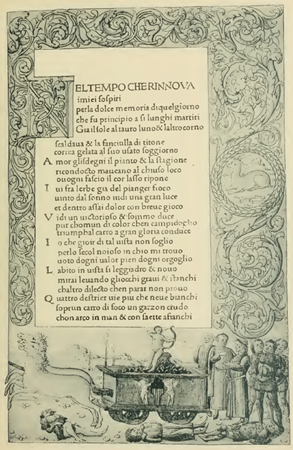 NEL TEMPO CHE RINNOVA
i miei sospiri
per la dolce memoria di quel giorno
che fu principio a si lunghi martiri
Gia il sole al tauro luno & laltro corno
scaldaua & la fanciulla di titone
correa gelata al suo usato soggiorno
A mor gli sdegni il pianto & la stagione
ricondocto maueano al chiuso loco
oue ogni fascio il cor lasso ripone
I ui fra lerbe gia del pianger fioco
uinto dal sonno uidi una gran luce
et dentro assai dolor con breue gioco
V idi un uictorioso & sommo duce
pur chomun di color chen campidoglio
triumphal carro a gran gloria conduce
I o che gioir di tal uista non soglio
per lo secol noioso in chio mi trouo
uoto dogni ualor pien dogni orgoglio
L abito in uista si leggiadro & nouo
mirai leuando gliocchi graui & stanchi
chaltro dilecto chen parar non prouo
Q uattro destrier uie piu che neue bianchi
soprun carro di foco un garzon crudo
chon arco in man & con saette afianchi